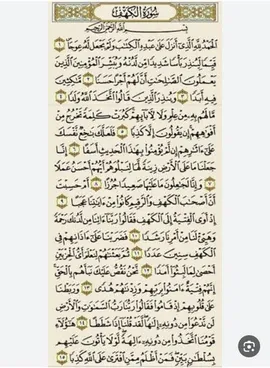 سُورَةُ الْكَهْفِ
بِسْمِ اللَّهِ الرَّحْمَٰنِ الرَّحِيمِ
الْحَمْدُ لِلَّهِ الَّذِي أَنْزَلَ عَلَىٰ عَبْدِهِ الْكِتَابَ وَلَمْ يَجْعَلْ لَهُ عِوَجًا ۝١
قَيِّمًا لِيُنْذِرَ بَأْسًا شَدِيدًا مِنْ لَدُنْهُ وَيُبَشِّرَ الْمُؤْمِنِينَ الَّذِينَ
يَعْمَلُونَ الصَّالِحَاتِ أَنَّ لَهُمْ أَجْرًا حَسَنًا ۝٢ مَاكِثِينَ
فِيهِ أَبَدًا ۝٣ وَيُنْذِرَ الَّذِينَ قَالُوا اتَّخَذَ اللَّهُ وَلَدًا ۝٤
مَا لَهُمْ بِهِ مِنْ عِلْمٍ وَلَا لِآبَائِهِمْ كَبُرَتْ كَلِمَةً تَخْرُجُ مِنْ
أَفْوَاهِهِمْ إِنْ يَقُولُونَ إِلَّا كَذِبًا ۝٥ فَلَعَلَّكَ بَاخِعٌ نَفْسَكَ
عَلَىٰ آثَارِهِمْ إِنْ لَمْ يُؤْمِنُوا بِهَٰذَا الْحَدِيثِ أَسَفًا ۝٦ إِنَّا
جَعَلْنَا مَا عَلَى الْأَرْضِ زِينَةً لَهَا لِنَبْلُوَهُمْ أَيُّهُمْ أَحْسَنُ عَمَلًا
۝٧ وَإِنَّا لَجَاعِلُونَ مَا عَلَيْهَا صَعِيدًا جُرُزًا ۝٨ أَمْ حَسِبْتَ
أَنَّ أَصْحَابَ الْكَهْفِ وَالرَّقِيمِ كَانُوا مِنْ آيَاتِنَا عَجَبًا ۝٩
إِذْ أَوَى الْفِتْيَةُ إِلَى الْكَهْفِ فَقَالُوا رَبَّنَا آتِنَا مِنْ لَدُنْكَ رَحْمَةً
وَهَيِّئْ لَنَا مِنْ أَمْرِنَا رَشَدًا ۝١٠ فَضَرَبْنَا عَلَىٰ آذَانِهِمْ فِي
الْكَهْفِ سِنِينَ عَدَدًا ۝١١ ثُمَّ بَعَثْنَاهُمْ لِنَعْلَمَ أَيُّ الْحِزْبَيْنِ
أَحْصَىٰ لِمَا لَبِثُوا أَمَدًا ۝١٢ نَحْنُ نَقُصُّ عَلَيْكَ نَبَأَهُمْ بِالْحَقِّ
إِنَّهُمْ فِتْيَةٌ آمَنُوا بِرَبِّهِمْ وَزِدْنَاهُمْ هُدًى ۝١٣ وَرَبَطْنَا
عَلَىٰ قُلُوبِهِمْ إِذْ قَامُوا فَقَالُوا رَبُّنَا رَبُّ السَّمَاوَاتِ وَالْأَرْضِ
لَنْ نَدْعُوَ مِنْ دُونِهِ إِلَٰهًا لَقَدْ قُلْنَا إِذًا شَطَطًا ۝١٤ هَٰؤُلَاءِ
قَوْمُنَا اتَّخَذُوا مِنْ دُونِهِ آلِهَةً لَوْلَا يَأْتُونَ عَلَيْهِمْ
بِسُلْطَانٍ بَيِّنٍ فَمَنْ أَظْلَمُ مِمَّنِ افْتَرَىٰ عَلَى اللَّهِ كَذِبًا ۝١٥